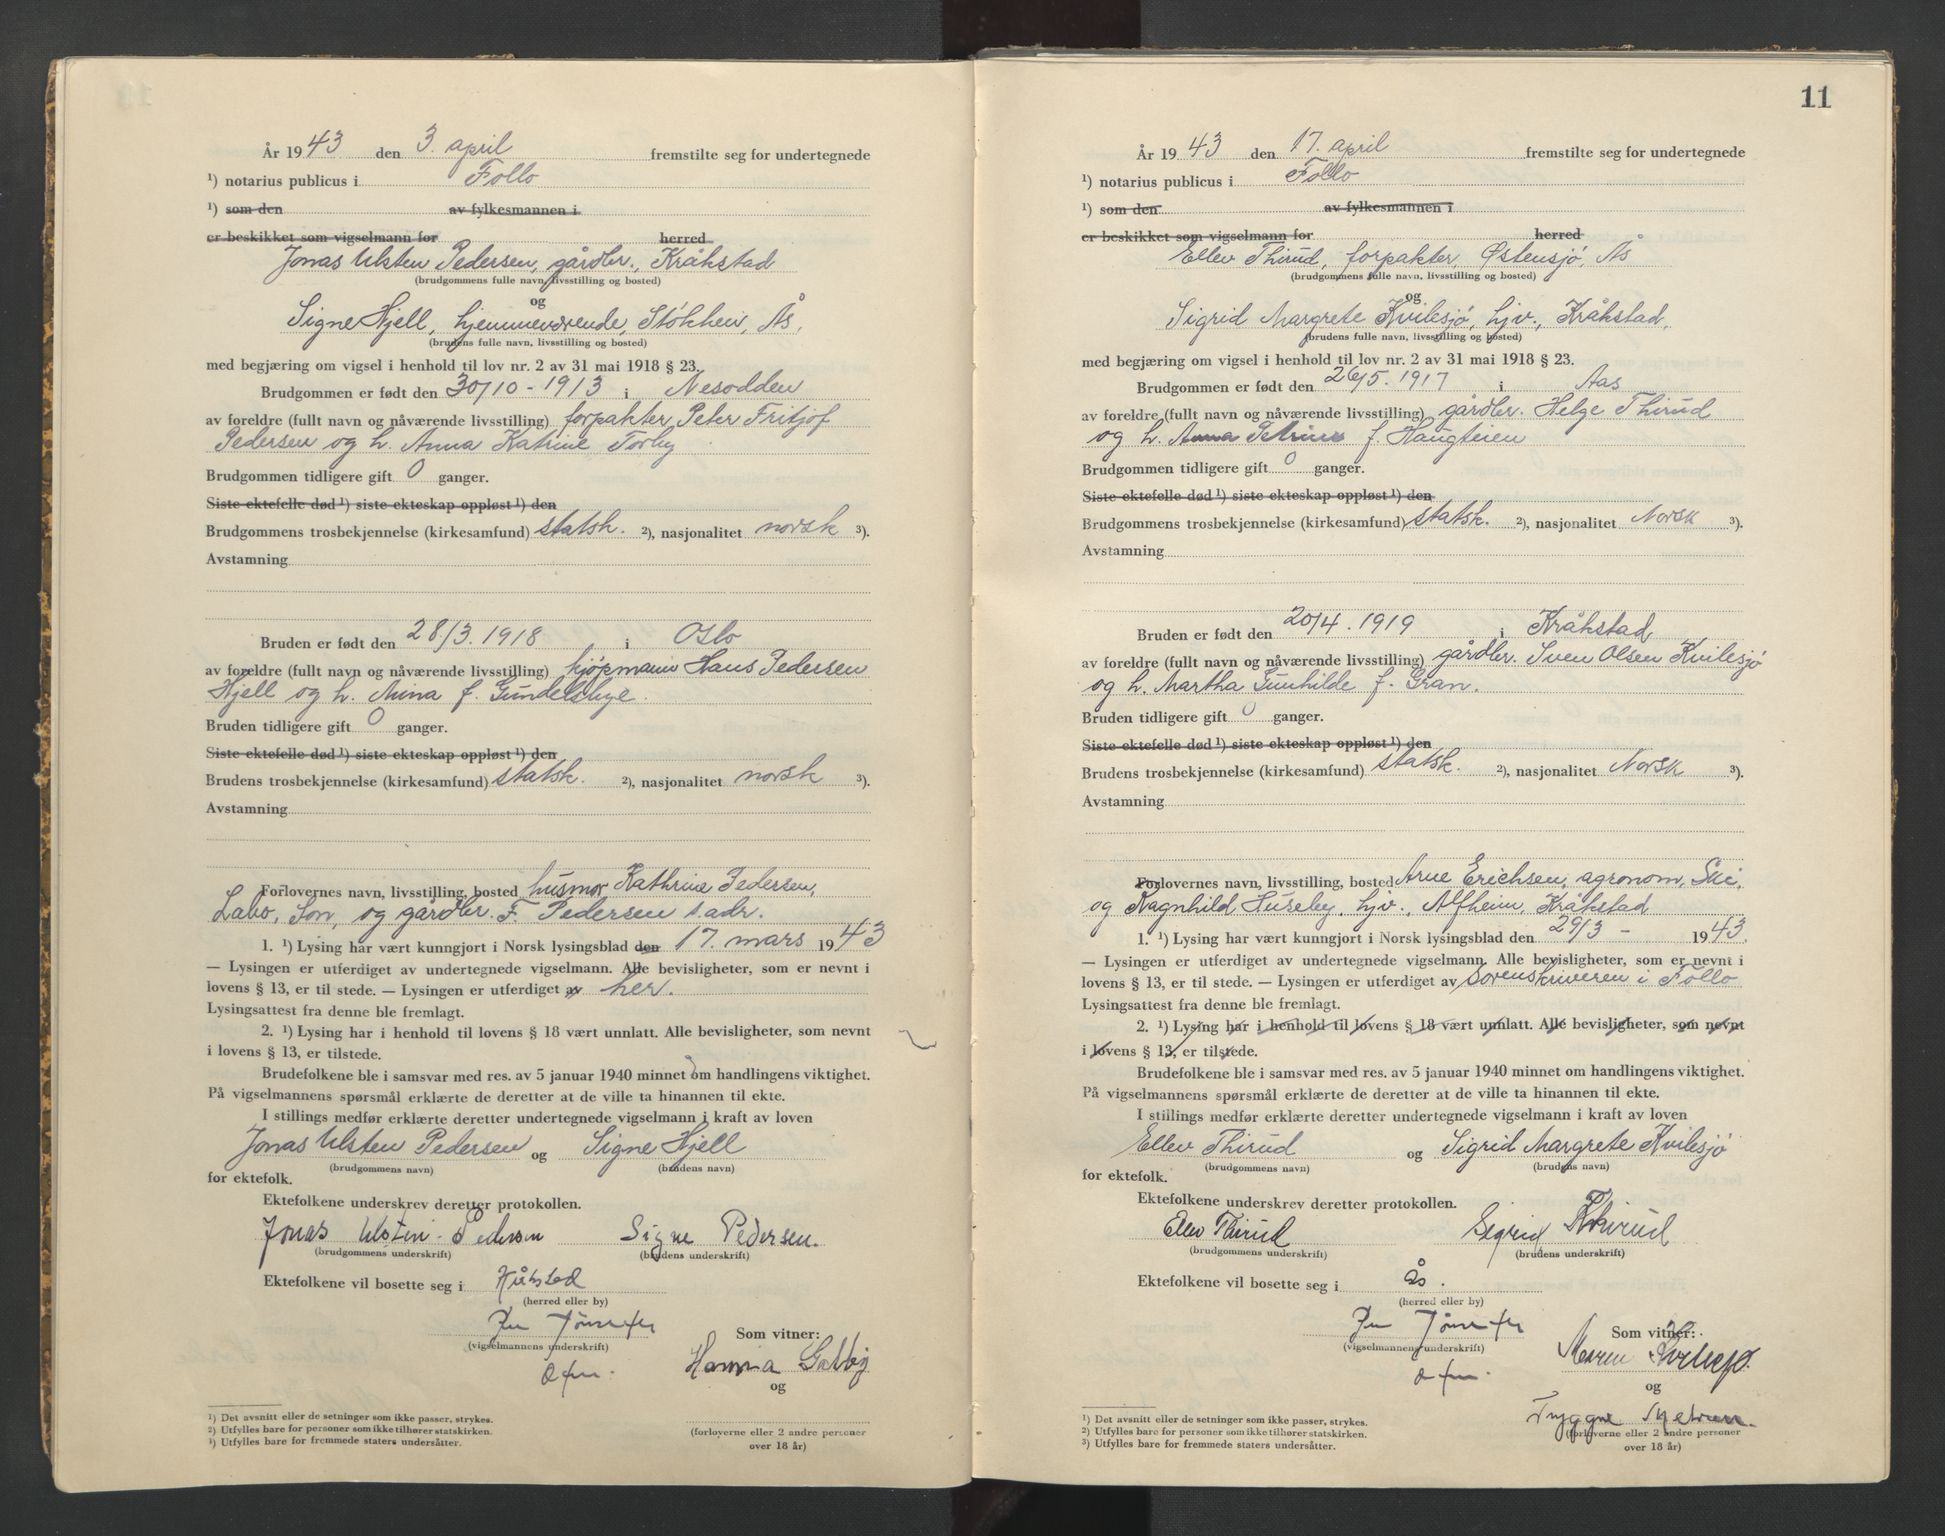 År 1943 den 3. april fremstilte seg for undertegnede
¹) notarius publicus i Follo
¹) som den av fylkesmannen i
er beskikket som vigselmann for herred
Jonas Ulsten Pedersen, gårdbr., Kråkstad
(brudgommens fulle navn, livsstilling og bosted)
og
Signe Hjell, hjemmeværende, Støkken, Ås,
(brudens fulle navn, livsstilling og bosted)
med begjæring om vigsel i henhold til lov nr. 2 av 31 mai 1918 § 23.
Brudgommen er født den 30/10 - 1913 i Nesodden
av foreldre (fullt navn og nåværende livsstilling) forpakter Peter Fritjof
Pedersen og h. Anna Katrine Torby
Brudgommen tidligere gift 0 ganger.
Siste ektefelle død ¹) siste ekteskap oppløst ¹) den
Brudgommens trosbekjennelse (kirkesamfund) statsk. ²), nasjonalitet norsk ³).
Avstamning
Bruden er født den 28/3. 1918 i Oslo
av foreldre (fullt navn og nåværende livsstilling) kjøpmann Hans Pedersen
Hjell og h. Anna f. Gundelshye.
Bruden tidligere gift 0 ganger.
Siste ektefelle død ¹) siste ekteskap oppløst ¹) den
Brudens trosbekjennelse (kirkesamfund) statsk. ²), nasjonalitet norsk ³).
Avstamning
Forlovernes navn, livsstilling, bosted husmor Kathrine Pedersen,
Labo, Son, og gårdbr. F. Pedersen s. adr.
1. ¹) Lysing har vært kunngjort i Norsk lysingsblad den 17. mars 1943
— Lysingen er utferdiget av undertegnede vigselmann. Alle bevisligheter, som er nevnt i
lovens § 13, er til stede. — Lysingen er utferdiget av her.
Lysingsattest fra denne ble fremlagt.
2. ¹) Lysing har i henhold til lovens § 18 vært unnlatt. Alle bevisligheter, som nevnt
i lovens § 13, er tilstede.
Brudefolkene ble i samsvar med res. av 5 januar 1940 minnet om handlingens viktighet.
På vigselmannens spørsmål erklærte de deretter at de ville ta hinannen til ekte.
I stillings medfør erklærte deretter undertegnede vigselmann i kraft av loven
Jonas Ulsten Pedersen og Signe Hjell
(brudgommens navn) (brudens navn)
for ektefolk.
Ektefolkene underskrev deretter protokollen.
Jonas Ulsten Pedersen Signe Pedersen.
(brudgommens underskrift) (brudens underskrift)
Ektefolkene vil bosette seg i Kråkstad
(herred eller by)
Som vitner:
(vigselmannens underskrift)
Hanna
og
¹) Det avsnitt eller de setninger som ikke passer, strykes.
²) Utfylles bare for personer som ikke tilhører statskirken.
³) Utfylles bare for fremmede staters undersåtter.
(forloverne eller 2 andre personer
over 18 år)
11
År 1943 den 17. april fremstilte seg for undertegnede
¹) notarius publicus i Follo
¹) som den av fylkesmannen i
er beskikket som vigselmann for herred
Ellev Thirud, forpakter, Østensjø, Ås
(brudgommens fulle navn, livsstilling og bosted)
og
Sigrid Margrete Kvilesjø, hjv., Kråkstad,
(brudens fulle navn, livsstilling og bosted)
med begjæring om vigsel i henhold til lov nr. 2 av 31 mai 1918 § 23.
Brudgommen er født den 26/5. 1917 i Aas
av foreldre (fullt navn og nåværende livsstilling) gårdbr. Helge Thirud
og h. Anna Petrine f. Haugteien
Brudgommen tidligere gift 0 ganger.
Siste ektefelle død ¹) siste ekteskap oppløst ¹) den
Brudgommens trosbekjennelse (kirkesamfund) statsk. ²), nasjonalitet Norsk ³).
Avstamning
Bruden er født den 20/4. 1919 i Kråkstad
av foreldre (fullt navn og nåværende livsstilling) gårdbr. Sven Olsen Kvilesjø
og h. Martha Gunhilde f. Gran.
Bruden tidligere gift 0 ganger.
Siste ektefelle død ¹) siste ekteskap oppløst ¹) den
Brudens trosbekjennelse (kirkesamfund) statsk. ²), nasjonalitet Norsk ³).
Avstamning
Forlovernes navn, livsstilling, bosted Arne Erichsen, agronom, Ski,
og Ragnhild Huseby, hjv., Alfheim, Kråkstad
1. ¹) Lysing har vært kunngjort i Norsk lysingsblad den 29/3 - 1943.
— Lysingen er utferdiget av undertegnede vigselmann. Alle bevisligheter, som er nevnt i
lovens § 13, er til stede. — Lysingen er utferdiget av Sorenskriveren i Follo
Lysingsattest fra denne ble fremlagt.
2. ¹) Lysing har i henhold til lovens § 18 vært unnlatt. Alle bevisligheter, som nevnt
i lovens § 13, er tilstede.
Brudefolkene ble i samsvar med res. av 5 januar 1940 minnet om handlingens viktighet.
På vigselmannens spørsmål erklærte de deretter at de ville ta hinannen til ekte.
I stillings medfør erklærte deretter undertegnede vigselmann i kraft av loven
Ellev Thirud og Sigrid Margrete Kvilesjø
(brudgommens navn) (brudens navn)
for ektefolk.
Ektefolkene underskrev deretter protokollen.
Ellev Thirud Sigrid Thirud
(brudgommens underskrift) (brudens underskrift)
Ektefolkene vil bosette seg i Ås.
(herred eller by)
Som vitner:
(vigselmannens underskrift)
og
¹) Det avsnitt eller de setninger som ikke passer, strykes.
²) Utfylles bare for personer som ikke tilhører statskirken.
³) Utfylles bare for fremmede staters undersåtter.
(forloverne eller 2 andre personer
over 18 år)